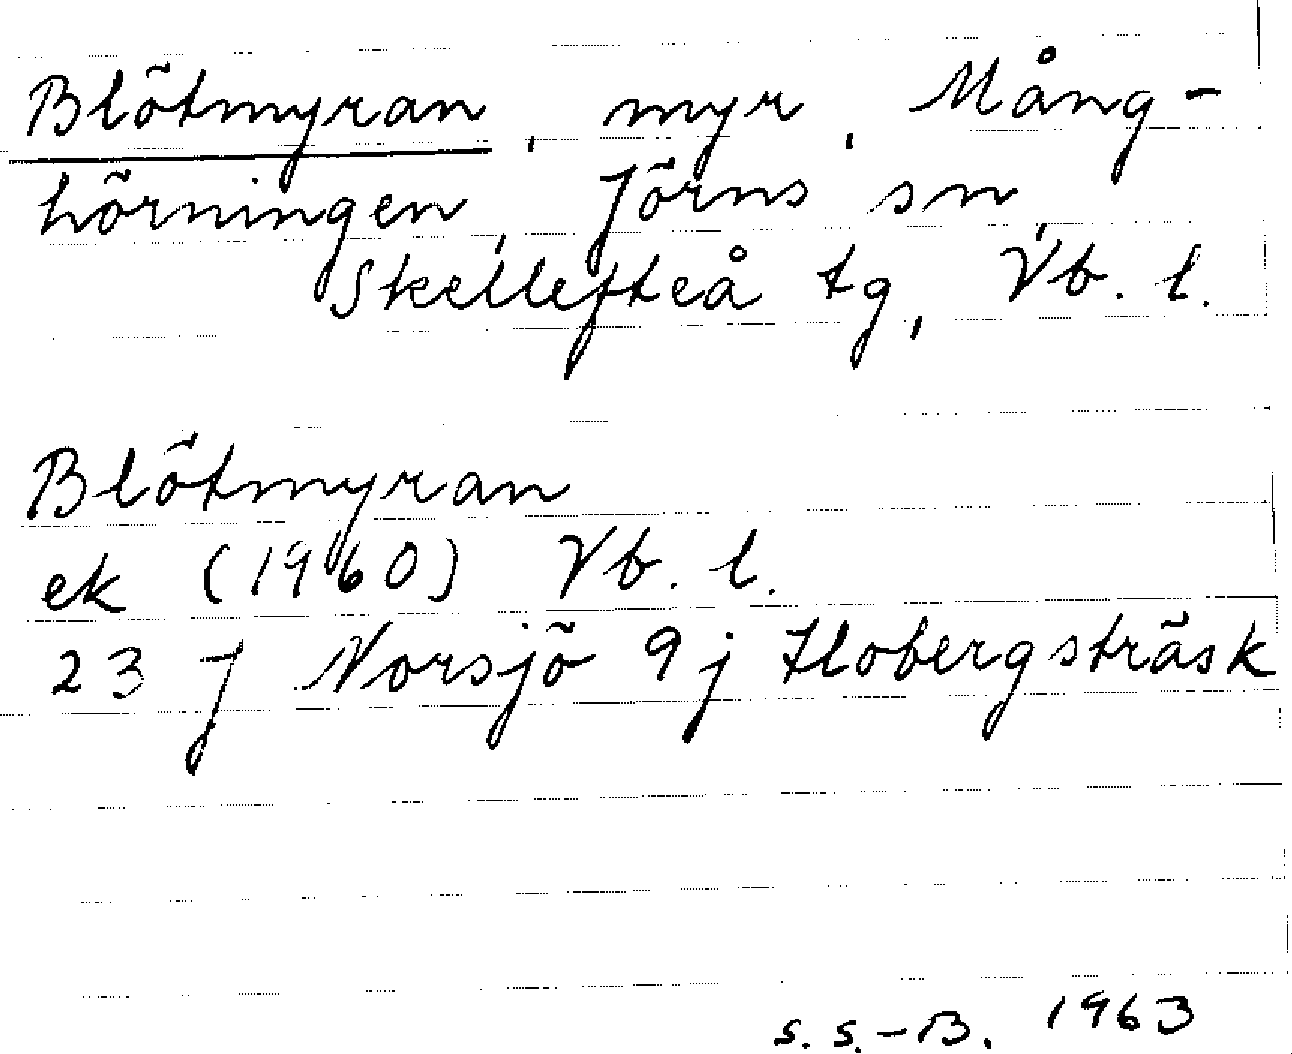 Blötmyran, myr, Mång-
hörningen, Jörns sn,
Skellefteå tg, Vb. l.
Blötmyran
ek (1960) Vb. l.
23 J Norsjö 9j Flobergsträsk
S. S.-B. 1963